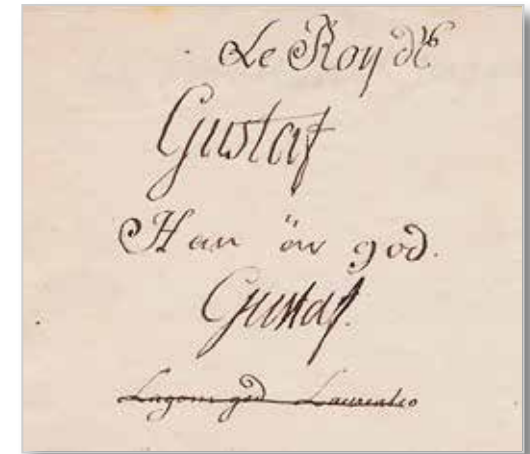 Le Roy
Gustaf
Han är god.
Gustaf.
Lagom god Laurentio